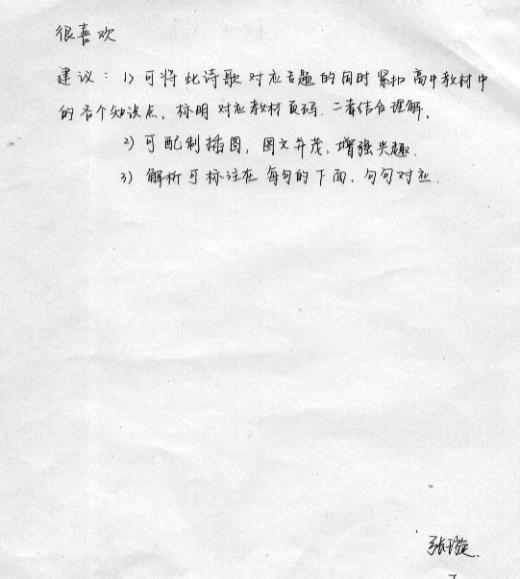 很喜欢
建议：1) 可将此诗歌对应专题的同时紧扣高中教材中
的各个知识点，标明对应教材页码．二者结合理解．
2) 可配制插图，图文并茂，增强兴趣．
3) 解析可标注在每句的下面．句句对应．
张璇．